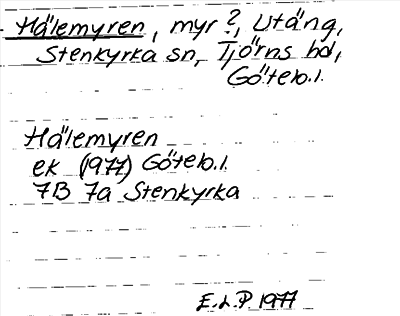 Hålemyren, myr?, Utäng,
Stenkyrka sn, Tjörns hd,
Göteb.l.
Hålemyren
ek (1977) Göteb.l.
7B 7a Stenkyrka
E.L.P 1977